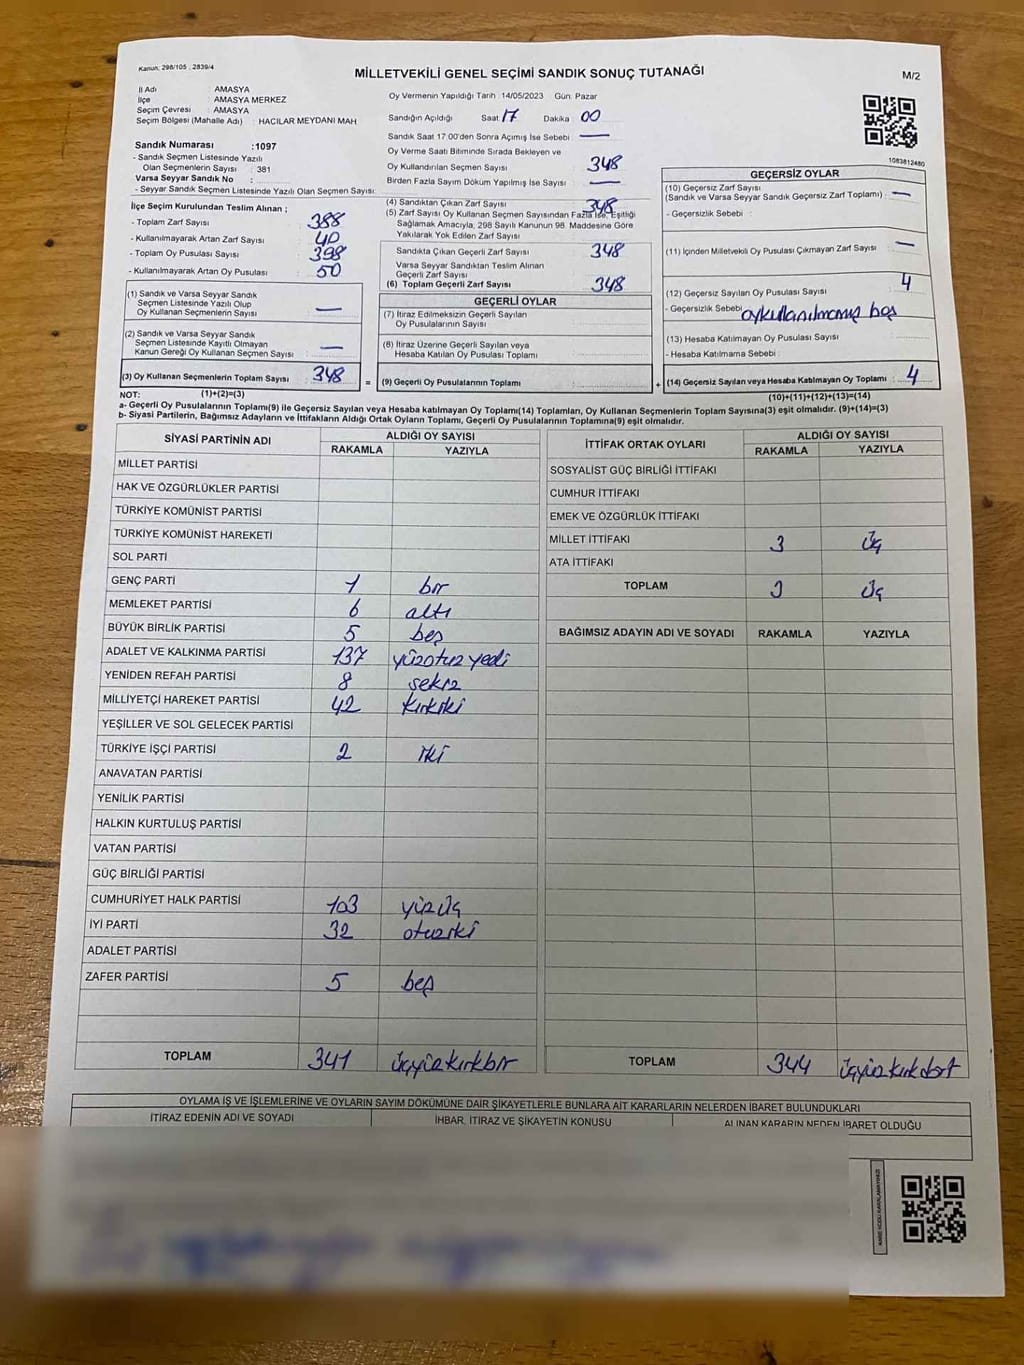 Kanun, 298/105 , 2839/4
MİLLETVEKİLİ GENEL SEÇİMİ SANDIK SONUÇ TUTANAĞI
M/2
İl Adı : AMASYA
İlçe : AMASYA MERKEZ
Seçim Çevresi : AMASYA
Seçim Bölgesi (Mahalle Adı) : HACILAR MEYDANI MAH
Sandık Numarası :1097
- Sandık Seçmen Listesinde Yazılı
Olan Seçmenlerin Sayısı : 381
Varsa Seyyar Sandık No :
- Seyyar Sandık Seçmen Listesinde Yazılı Olan Seçmen Sayısı:
İlçe Seçim Kurulundan Teslim Alınan ;
- Toplam Zarf Sayısı : 388
- Kullanılmayarak Artan Zarf Sayısı : 40
- Toplam Oy Pusulası Sayısı : 398
- Kullanılmayarak Artan Oy Pusulası : 50
(1) Sandık ve Varsa Seyyar Sandık
Seçmen Listesinde Yazılı Olup
Oy Kullanan Seçmenlerin Sayısı : —
(2) Sandık ve Varsa Seyyar Sandık
Seçmen Listesinde Kayıtlı Olmayan
Kanun Gereği Oy Kullanan Seçmen Sayısı : —
(3) Oy Kullanan Seçmenlerin Toplam Sayısı : 348
Oy Vermenin Yapıldığı Tarih : 14/05/2023 Gün: Pazar
Sandığın Açıldığı Saat 17 Dakika 00
Sandık Saat 17.00'den Sonra Açılmış İse Sebebi : —
Oy Verme Saati Bitiminde Sırada Bekleyen ve
Oy Kullandırılan Seçmen Sayısı : 348
Birden Fazla Sayım Döküm Yapılmış İse Sayısı : —
(4) Sandıktan Çıkan Zarf Sayısı : 348
(5) Zarf Sayısı Oy Kullanan Seçmen Sayısından Fazla İse, Eşitliği
Sağlamak Amacıyla, 298 Sayılı Kanunun 98. Maddesine Göre
Yakılarak Yok Edilen Zarf Sayısı :
Sandıkta Çıkan Geçerli Zarf Sayısı : 348
Varsa Seyyar Sandıktan Teslim Alınan
Geçerli Zarf Sayısı :
(6) Toplam Geçerli Zarf Sayısı : 348
GEÇERLİ OYLAR
(7) İtiraz Edilmeksizin Geçerli Sayılan
Oy Pusulalarının Sayısı :
(8) İtiraz Üzerine Geçerli Sayılan veya
Hesaba Katılan Oy Pusulası Toplamı :
= (9) Geçerli Oy Pusulalarının Toplamı :
1083812480
GEÇERSİZ OYLAR
(10) Geçersiz Zarf Sayısı
(Sandık ve Varsa Seyyar Sandık Geçersiz Zarf Toplamı) : —
- Geçersizlik Sebebi :
(11) İçinden Milletvekili Oy Pusulası Çıkmayan Zarf Sayısı : —
(12) Geçersiz Sayılan Oy Pusulası Sayısı : 4
- Geçersizlik Sebebi : oy kullanılmamış boş
(13) Hesaba Katılmayan Oy Pusulası Sayısı :
- Hesaba Katılmama Sebebi :
+ (14) Geçersiz Sayılan veya Hesaba Katılmayan Oy Toplamı : 4
NOT: (1)+(2)=(3)
(10)+(11)+(12)+(13)=(14)
a- Geçerli Oy Pusulalarının Toplamı(9) ile Geçersiz Sayılan veya Hesaba katılmayan Oy Toplamı(14) Toplamları, Oy Kullanan Seçmenlerin Toplam Sayısına(3) eşit olmalıdır. (9)+(14)=(3)
b- Siyasi Partilerin, Bağımsız Adayların ve İttifakların Aldığı Ortak Oyların Toplamı, Geçerli Oy Pusulalarının Toplamına(9) eşit olmalıdır.
SİYASİ PARTİNİN ADI
ALDIĞI OY SAYISI
RAKAMLA YAZIYLA
MİLLET PARTİSİ
HAK VE ÖZGÜRLÜKLER PARTİSİ
TÜRKİYE KOMÜNİST PARTİSİ
TÜRKİYE KOMÜNİST HAREKETİ
SOL PARTİ
GENÇ PARTİ 1 bir
MEMLEKET PARTİSİ 6 altı
BÜYÜK BİRLİK PARTİSİ 5 beş
ADALET VE KALKINMA PARTİSİ 137 yüzotuz yedi
YENİDEN REFAH PARTİSİ 8 sekiz
MİLLİYETÇİ HAREKET PARTİSİ 42 kırkiki
YEŞİLLER VE SOL GELECEK PARTİSİ
TÜRKİYE İŞÇİ PARTİSİ 2 iki
ANAVATAN PARTİSİ
YENİLİK PARTİSİ
HALKIN KURTULUŞ PARTİSİ
VATAN PARTİSİ
GÜÇ BİRLİĞİ PARTİSİ
CUMHURİYET HALK PARTİSİ 103 yüzüç
İYİ PARTİ 32 otuziki
ADALET PARTİSİ
ZAFER PARTİSİ 5 beş
TOPLAM 341 üçyüzkırkbir
İTTİFAK ORTAK OYLARI
ALDIĞI OY SAYISI
RAKAMLA YAZIYLA
SOSYALİST GÜÇ BİRLİĞİ İTTİFAKI
CUMHUR İTTİFAKI
EMEK VE ÖZGÜRLÜK İTTİFAKI
MİLLET İTTİFAKI 3 üç
ATA İTTİFAKI
TOPLAM 3 üç
BAĞIMSIZ ADAYIN ADI VE SOYADI RAKAMLA YAZIYLA
TOPLAM 344 üçyüzkırkdört
OYLAMA İŞ VE İŞLEMLERİNE VE OYLARIN SAYIM DÖKÜMÜNE DAİR ŞİKAYETLERLE BUNLARA AİT KARARLARIN NELERDEN İBARET BULUNDUKLARI
İTİRAZ EDENİN ADI VE SOYADI
İHBAR, İTİRAZ VE ŞİKAYETİN KONUSU
ALINAN KARARIN NEDEN İBARET OLDUĞU